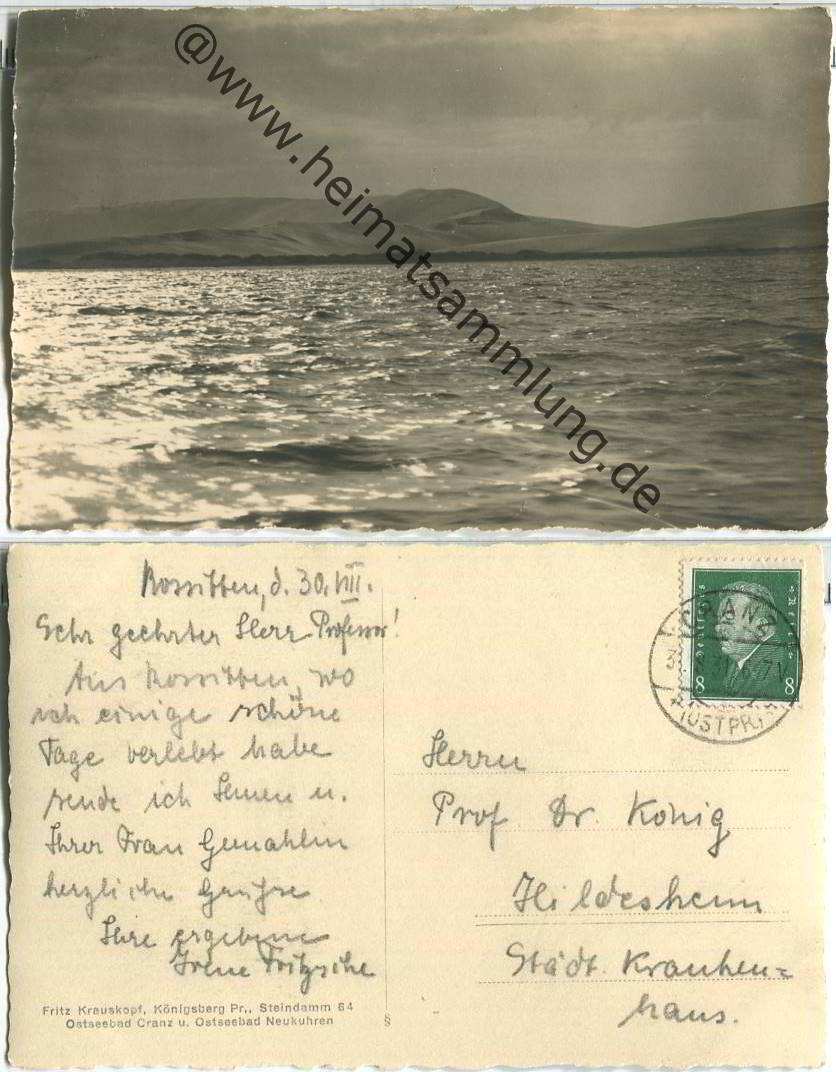 @www.heimatsammlung.de
Rossitten, d. 30. VIII.
Sehr geehrter Herr Professor!
Aus Rossitten, wo
ich einige schöne
Tage verlebt habe
sende ich Ihnen u.
Ihrer Frau Gemahlin
herzliche Grüsse.
Ihre ergebene
Irene Fritzsche
Fritz Krauskopf, Königsberg Pr., Steindamm 64
Ostseebad Cranz u. Ostseebad Neukuhren
§
CRANZ
(OSTPR.)
8 8
Herrn
Prof. Dr. König
Hildesheim
Städt. Kranken=
haus.